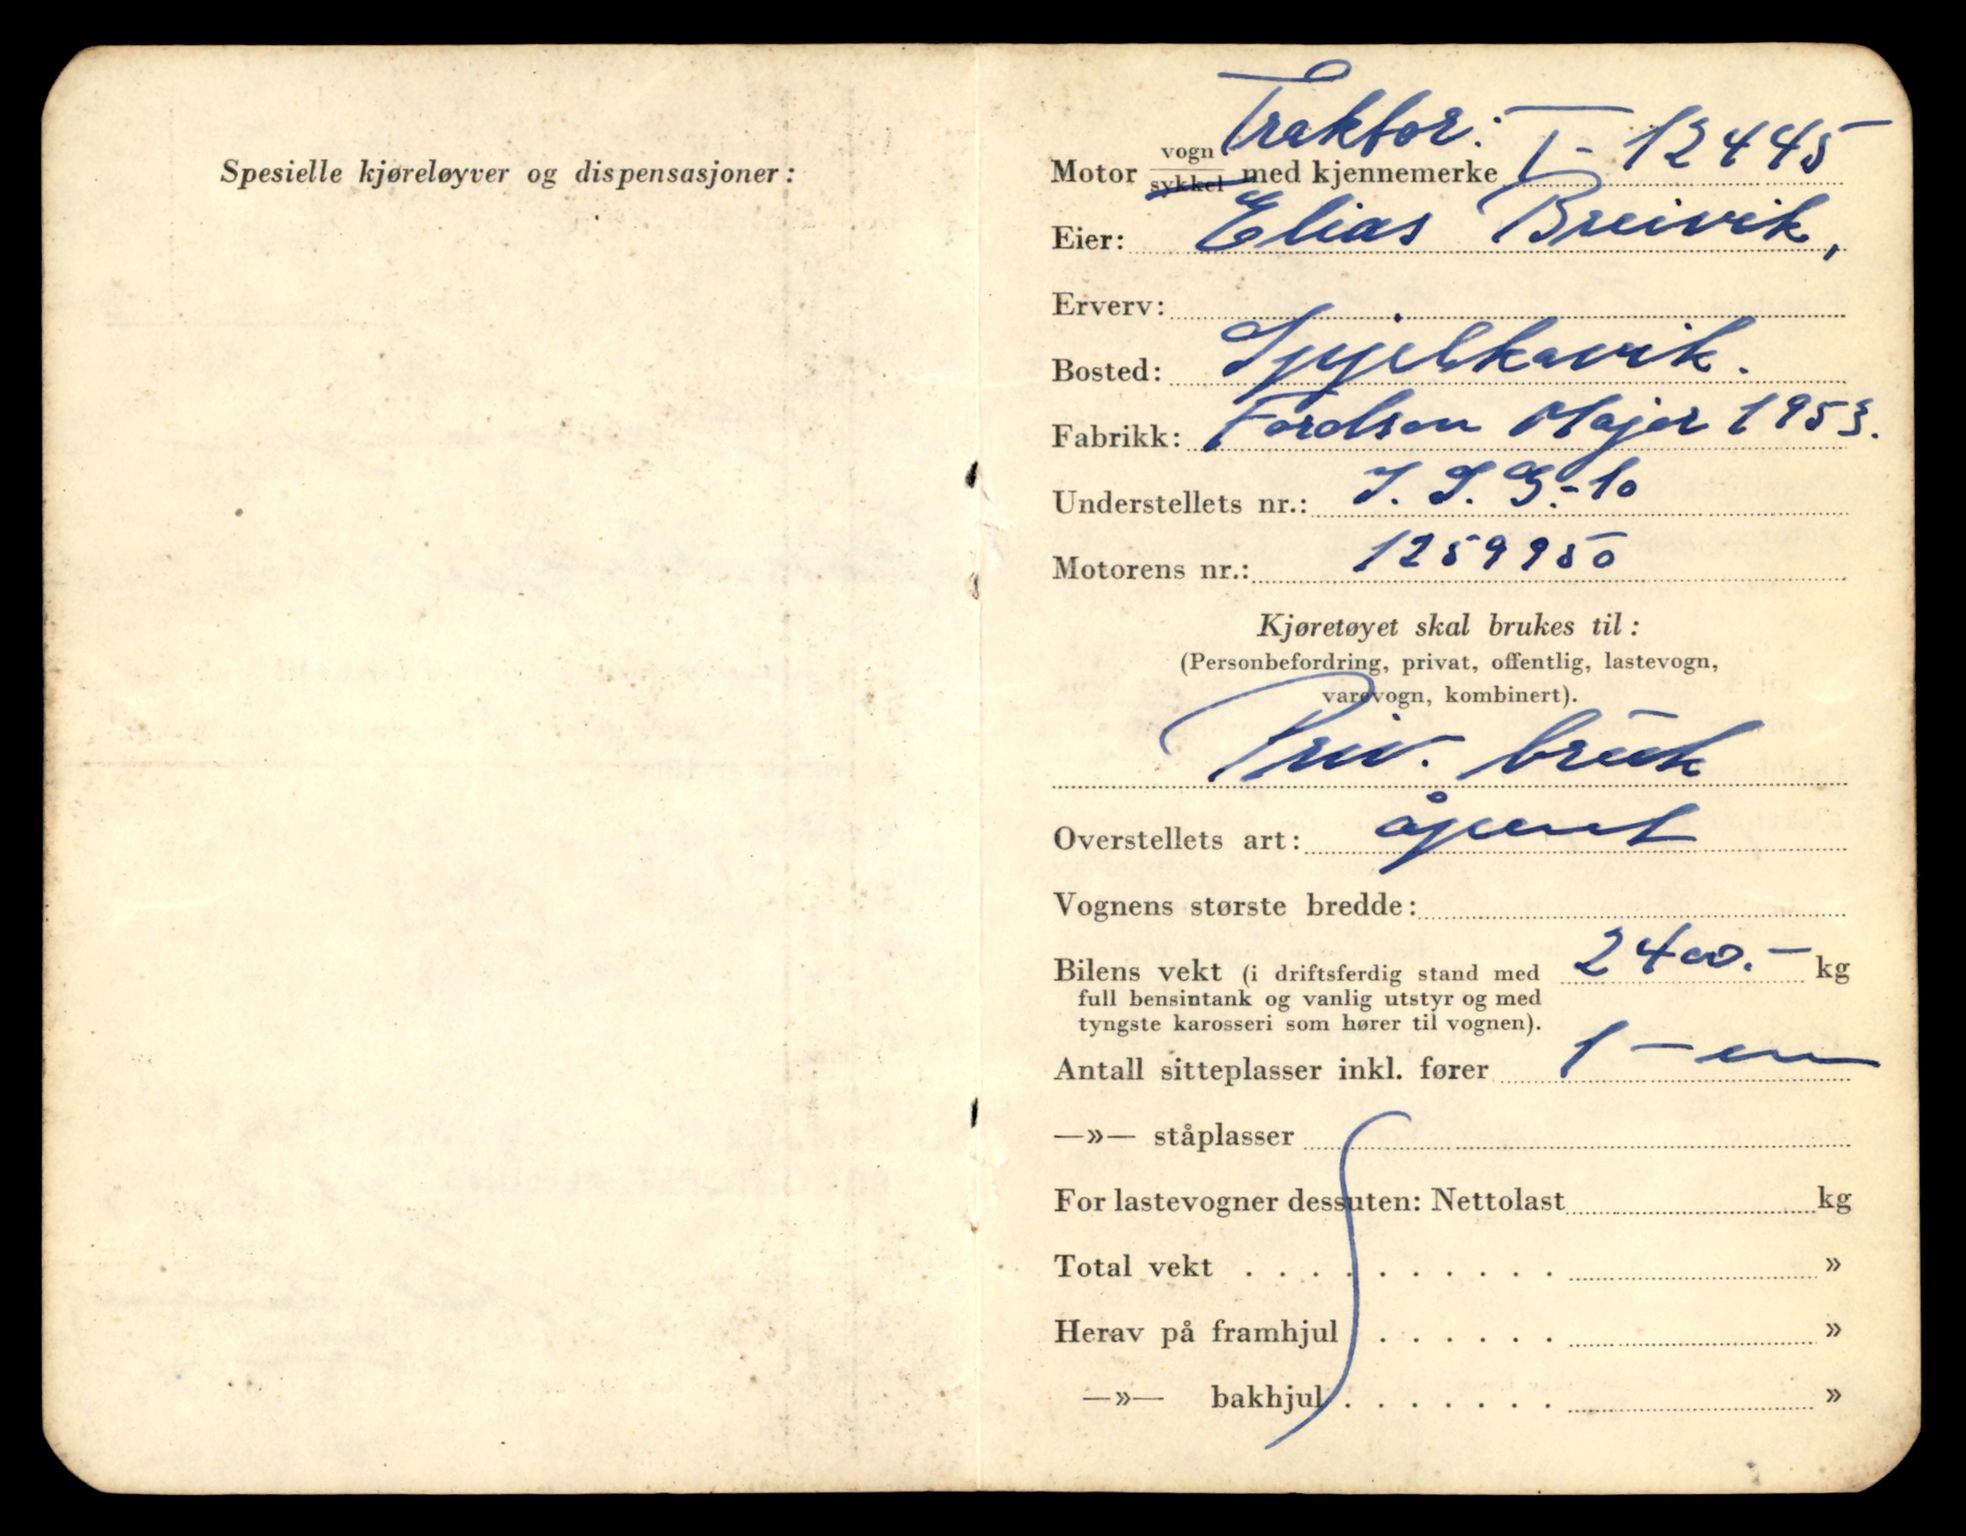 Spesielle kjøreløyver og dispensasjoner:
Traktor:
Motor vogn sykkel med kjennemerke T-12445
Eier: Elias Breivik,
Erverv:
Bosted: Spjelkavik.
Fabrikk: Fordson Major 1953.
Understellets nr.: -10
Motorens nr.: 1259950
Kjøretøyet skal brukes til:
(Personbefordring, privat, offentlig, lastevogn,
varevogn, kombinert).
Priv. bruk
Overstellets art: åpent
Vognens største bredde:
Bilens vekt (i driftsferdig stand med 2400.- kg
full bensintank og vanlig utstyr og med
tyngste karosseri som hører til vognen).
Antall sitteplasser inkl. fører 1 - en
—»— ståplasser
For lastevogner dessuten: Nettolast kg
Total vekt . . . . . . . . . . »
Herav på framhjul . . . . . . »
—»— bakhjul . . . . . . . »